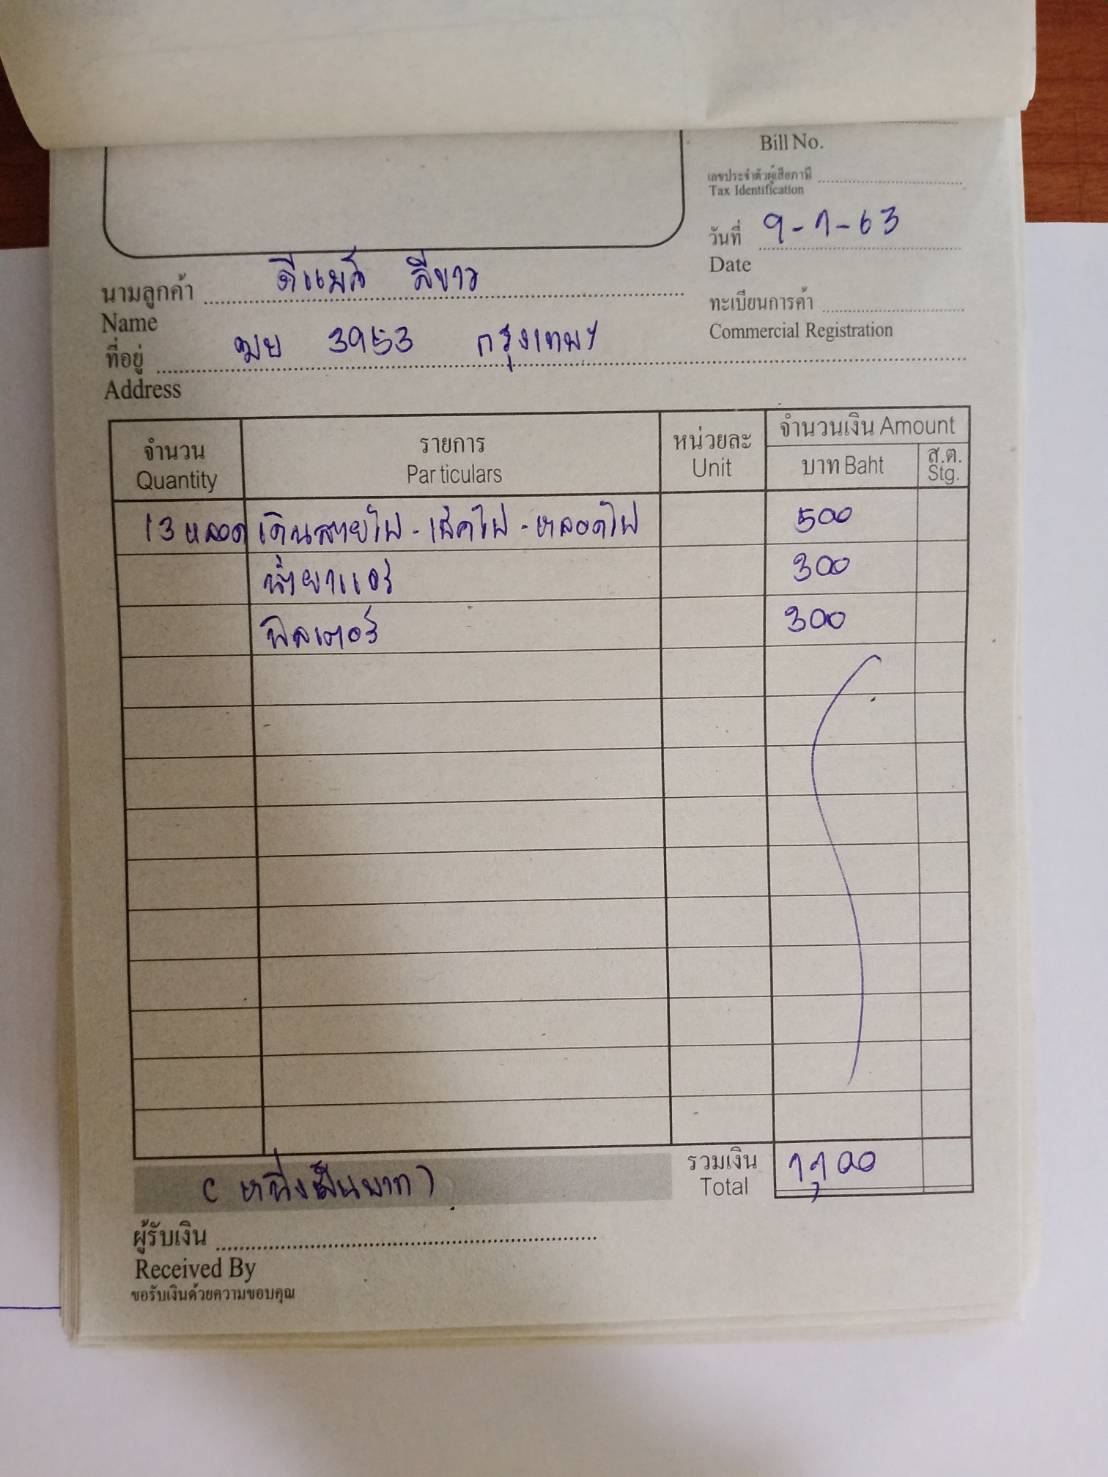 Bill No.
เลขประจำตัวผู้เสียภาษี
Tax Identification
วันที่ 9-1-63
Date
นามลูกค้า ดีแมล์ สีขาว
Name
ทะเบียนการค้า
Commercial Registration
ที่อยู่ ฆย 3953 กรุงเทพฯ
Address
จำนวน รายการ หน่วยละ จำนวนเงิน Amount
Quantity Particulars Unit บาท Baht ส.ต. Stg.
13 หลอด เดินสายไฟ - เช็คไฟ - หลอดไฟ 500
น้ำยาแอร์ 300
ฟิลเตอร์ 300
รวมเงิน 1,100
Total
ผู้รับเงิน
Received By
ขอรับเงินด้วยความขอบคุณ